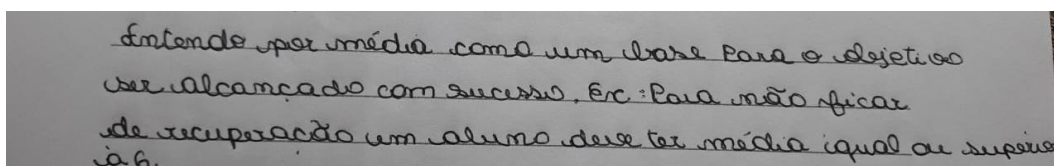 Entendo por média como um base para o objetivo
ser alcançado com sucesso. Ex: Para não ficar
de recuperação um aluno deve ter média igual ou superio
à 6.